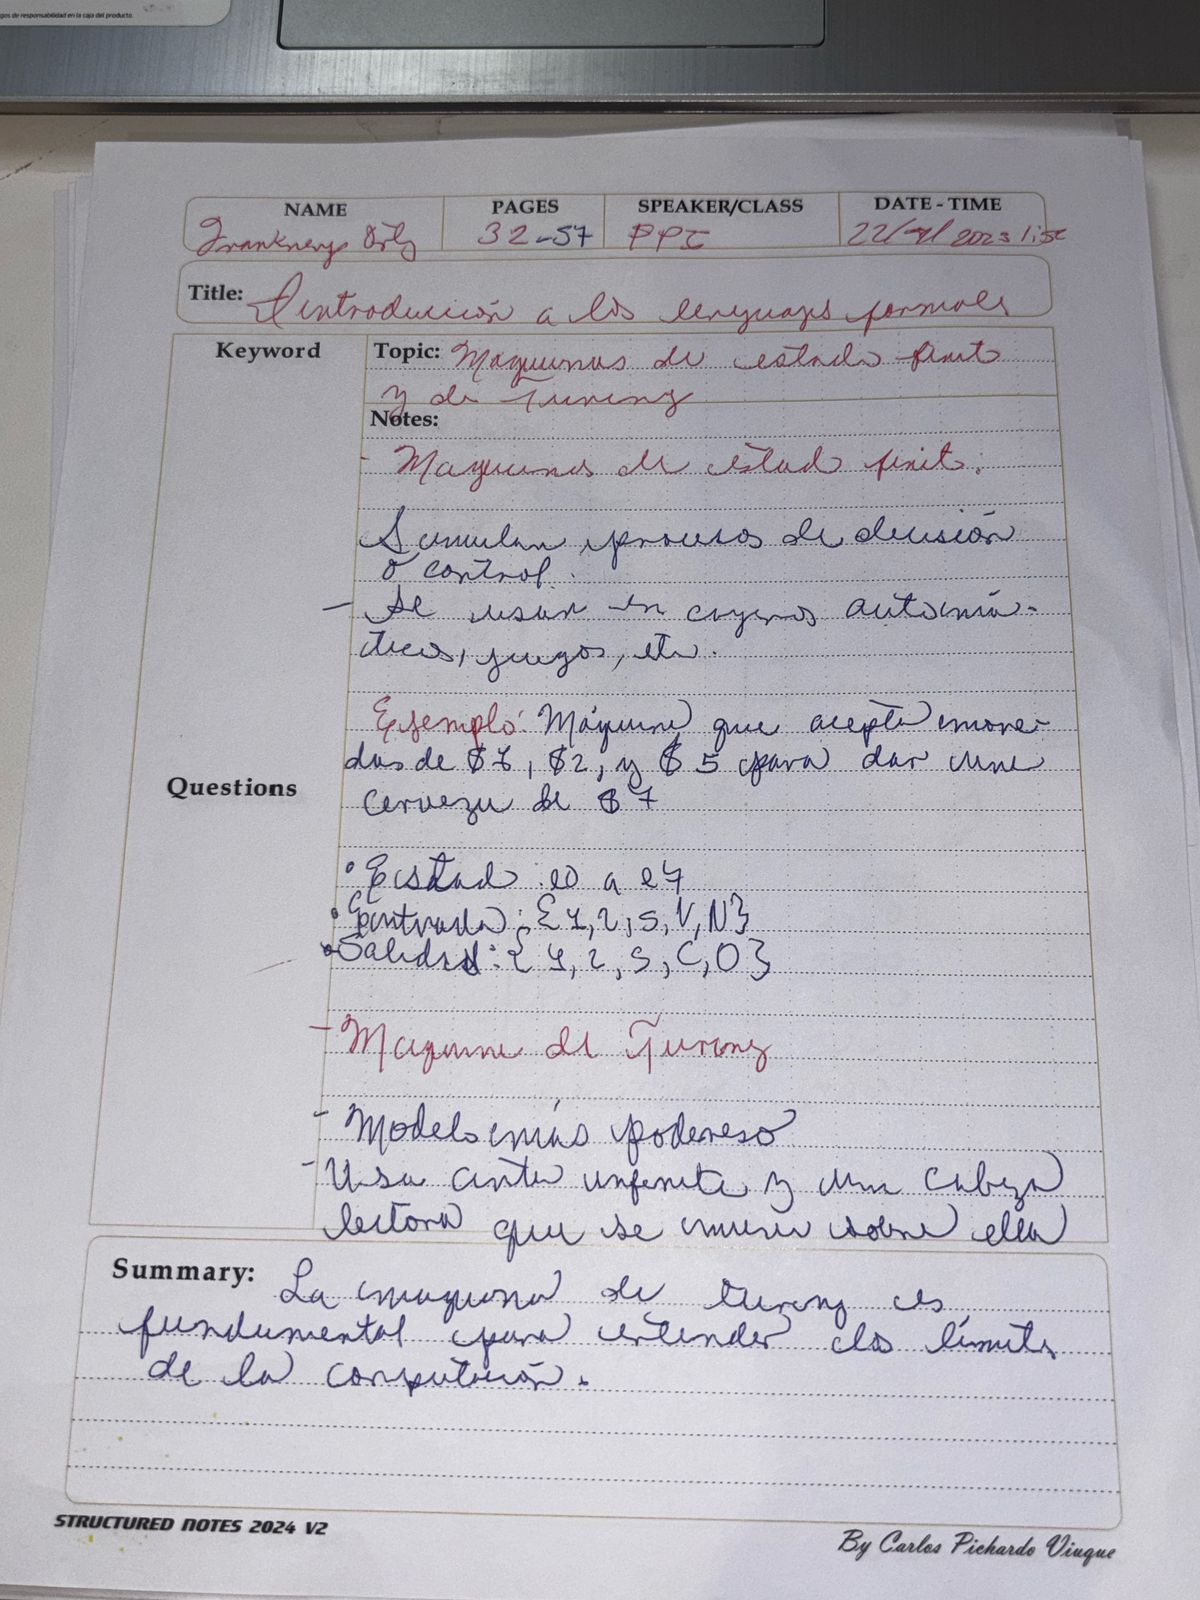 gos de responsabilidad en la caja del producto.
NAME PAGES SPEAKER/CLASS DATE - TIME
32-57 PPI
Title: introducción a los lenguajes formales
Keyword
Topic: Maquinas de estado finito
y de Turing
Notes:
- Maquinas de estad finit.
Simulan procesos de decisión
o control.
- Se usan en cajeros automá-
ticos, juegos, etc.
Ejemplo: Máquina que acepta mone-
das de $1, $2, y $5 para dar una
cerveza de $7
Questions
• Estado e0 a e7
• Entrada: {1, 2, 5, V, N}
• Salida: { 1, 2, 5, C, O}
- Maquina de Turing
- Modelo más poderoso
- Usa cinta infinita y una cabeza
lectora que se mueve sobre ella
Summary: La maquina de turing es
fundamental para entender los límites
de la computación.
STRUCTURED NOTES 2024 V2
By Carlos Pichardo Viuque